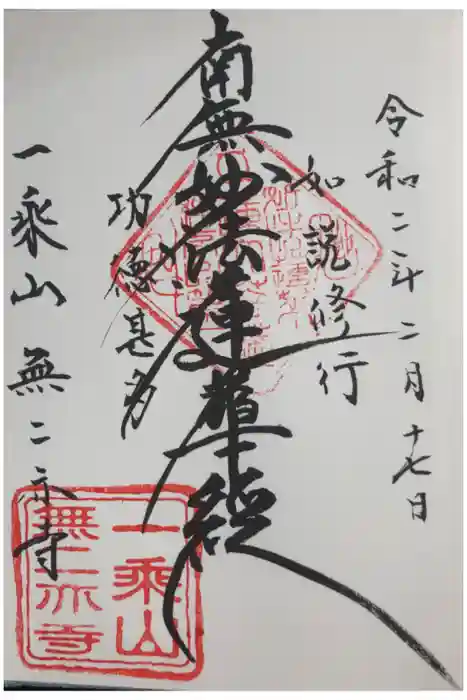 令和二年二月十七日
如説修行
南無妙法蓮華経
功徳甚多
一乗山 無二亦寺
一乗山
無二亦寺